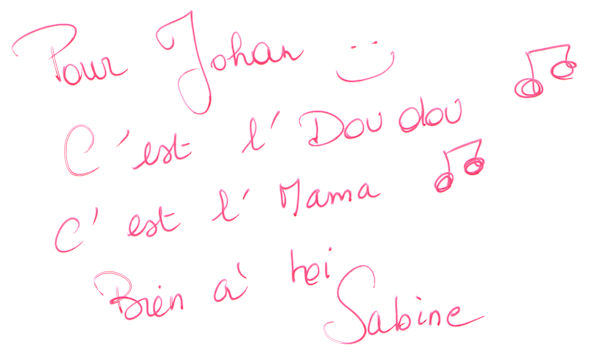 Pour Johan
C'est l'Doudou
C'est l'Mama
Bien à toi
Sabine